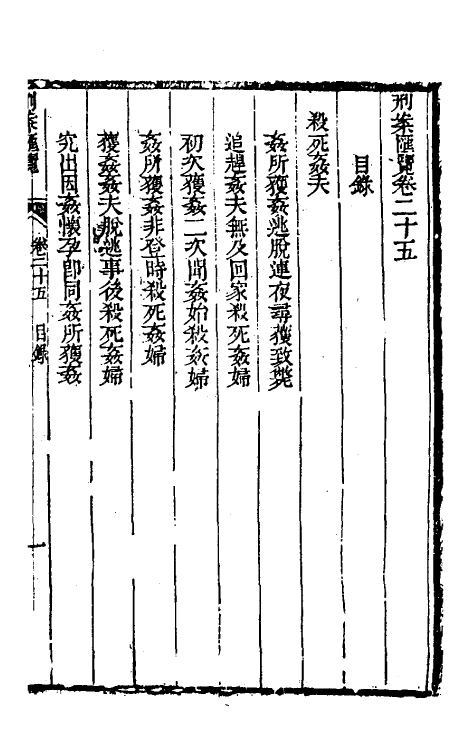 刑案匯覽卷二十五
目錄
殺死姦夫
姦所獲姦逃脫連夜尋獲致斃
追趕姦夫無及回家殺死姦婦
初次獲姦二次聞姦始殺姦婦
姦所獲姦非登時殺死姦婦
獲姦姦夫脫逃事後殺死姦婦
究出因姦懷孕即同姦所獲姦
刑案匯覽 卷二十五 目錄 一